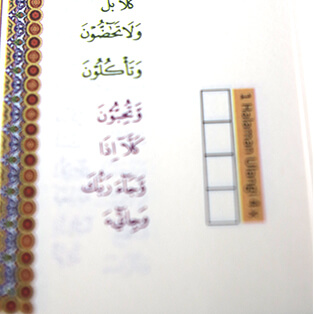 كَلَّا بَل
وَلَا تَحَٰٓضُّونَ
وَتَأْكُلُونَ
وَتُحِبُّونَ
كَلَّآ إِذَا
وَجَآءَ رَبُّكَ
وَجِا۟يٓءَ
Halaman Ulang